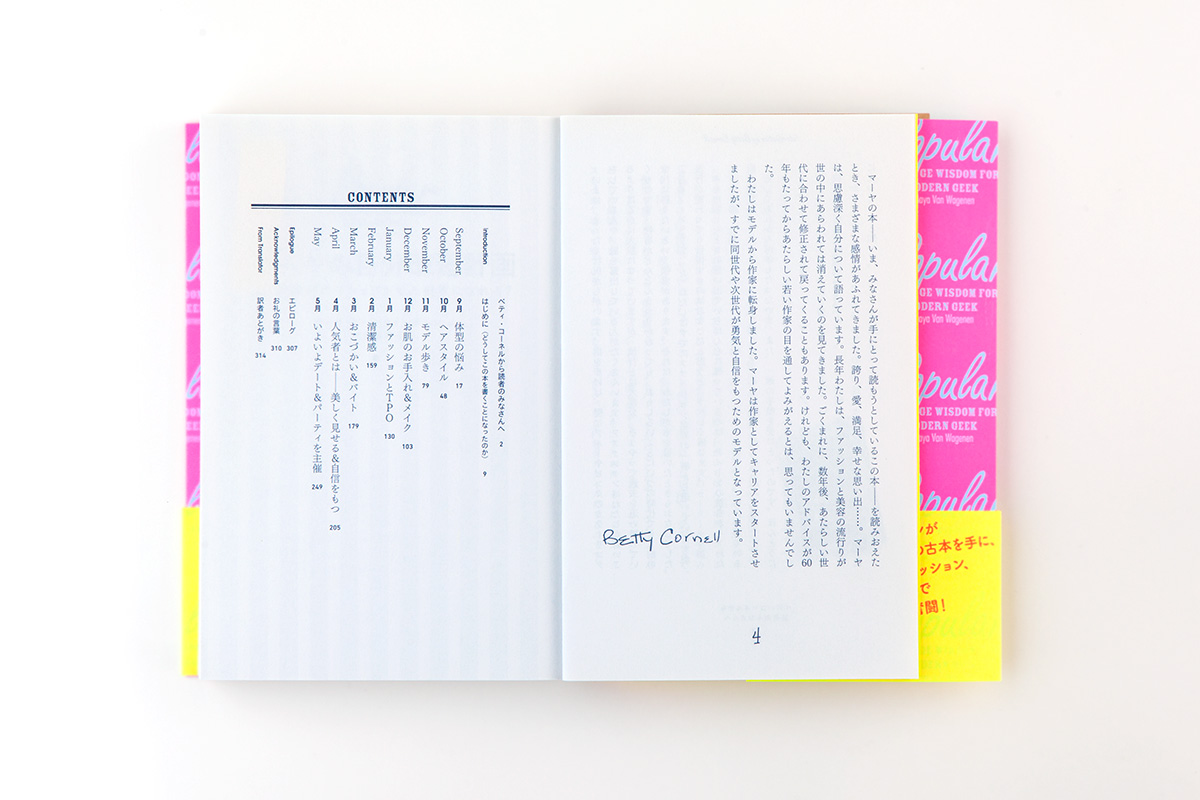 マーヤの本――いま、みなさんが手にとって読もうとしているこの本――を読みおえた
とき、さまざまな感情があふれてきました。誇り、愛、満足、幸せな思い出……。マーヤ
は、思慮深く自分について語っています。長年わたしは、ファッションと美容の流行りが
世の中にあらわれては消えていくのを見てきました。ごくまれに、数年後、あたらしい世
代に合わせて修正されて戻ってくることもあります。けれども、わたしのアドバイスが60
年もたってからあたらしい若い作家の目を通してよみがえるとは、思ってもいませんでし
た。
わたしはモデルから作家に転身しました。マーヤは作家としてキャリアをスタートさせ
ましたが、すでに同世代や次世代が勇気と自信をもつためのモデルとなっています。
Betty Cornell
4
CONTENTS
ベティ・コーネルから読者のみなさんへ 2
Introduction はじめに（どうしてこの本を書くことになったのか） 9
September 9月 体型の悩み 17
October 10月 ヘアスタイル 48
November 11月 モデル歩き 79
December 12月 お肌のお手入れ&メイク 103
January 1月 ファッションとTPO 130
February 2月 清潔感 159
March 3月 おこづかい&バイト 179
April 4月 人気者とは――美しく見せる&自信をもつ 205
May 5月 いよいよデート&パーティを主催 249
Epilogue エピローグ 307
Acknowledgments お礼の言葉 310
From Translator 訳者あとがき 314
opular
GE WISDOM FOR
ODERN GEEK
aya Van Wagenen
opular
GE WISDOM FOR
ODERN GEEK
aya Van Wagenen
opular
GE WISDOM FOR
ODERN GEEK
aya Van Wagenen
opular
が
古本を手に、
ッション、
で
奮闘！